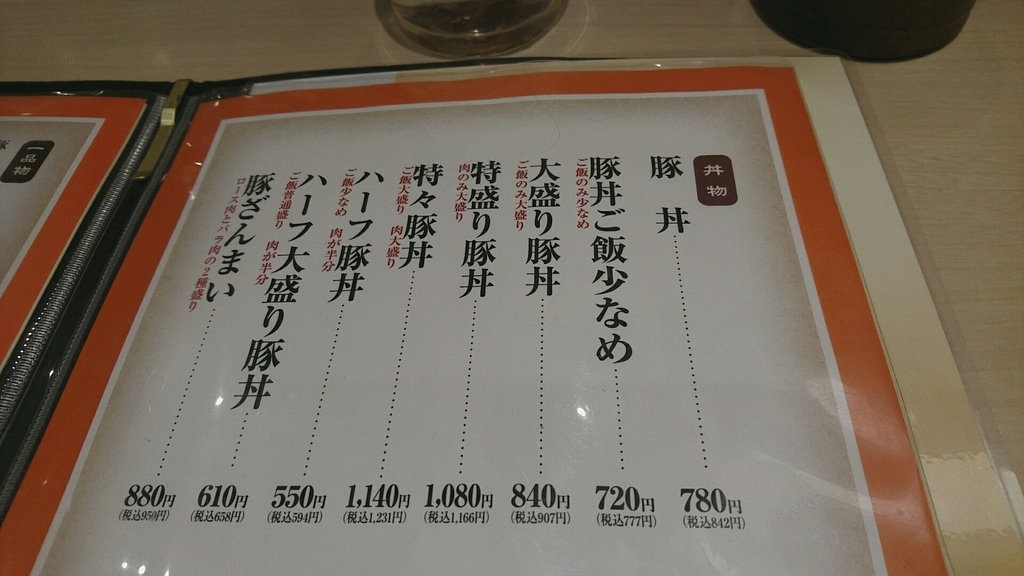 丼物
豚丼
780円
(税込842円)
豚丼ご飯少なめ
ご飯のみ少なめ
720円
(税込777円)
大盛り豚丼
ご飯のみ大盛り
840円
(税込907円)
特盛り豚丼
肉のみ大盛り
1,080円
(税込1,166円)
特々豚丼
ご飯大盛り 肉大盛り
1,140円
(税込1,231円)
ハーフ豚丼
ご飯少なめ 肉が半分
550円
(税込594円)
ハーフ大盛り豚丼
ご飯普通盛り 肉が半分
610円
(税込658円)
豚ざんまい
ロース肉とバラ肉の2種盛り
880円
(税込950円)
一品物
豚